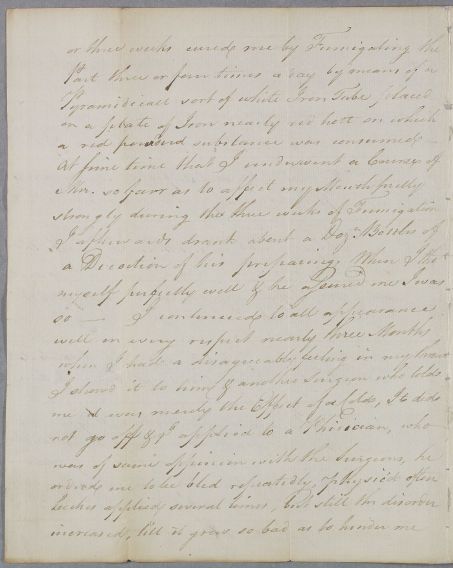 or three weeks cured me by Fumigating the
Part three or four times a day by means of a
Pyramidicall sort of white Iron Tube placed
on a plate of Iron nearly red hott on which
a red powderd substance was consumed —
At fame time that I underwent a Course of
so farr as to affect my Mouth pretty
strongly during the three weeks of Fumigation
I afterwards drank about a Dozn Bottles of
a Decoction of his preparing, When I thot
myself perfectly well & he assured me I was
so — I continued to all appearance
well in every respect nearly three Months
when I had a disagreeable feeling in my
I showd it to him & another Surgeon who told
me it was merely the Effect of a Cold, It did
not go off & I applied to a Phisician, who
was of same oppinion with the Surgeons, he
orderd me to be bled repeatedly, physic'd often
leeches applied several times, but still the disorder
increased, till it grew so bad as to hinder me